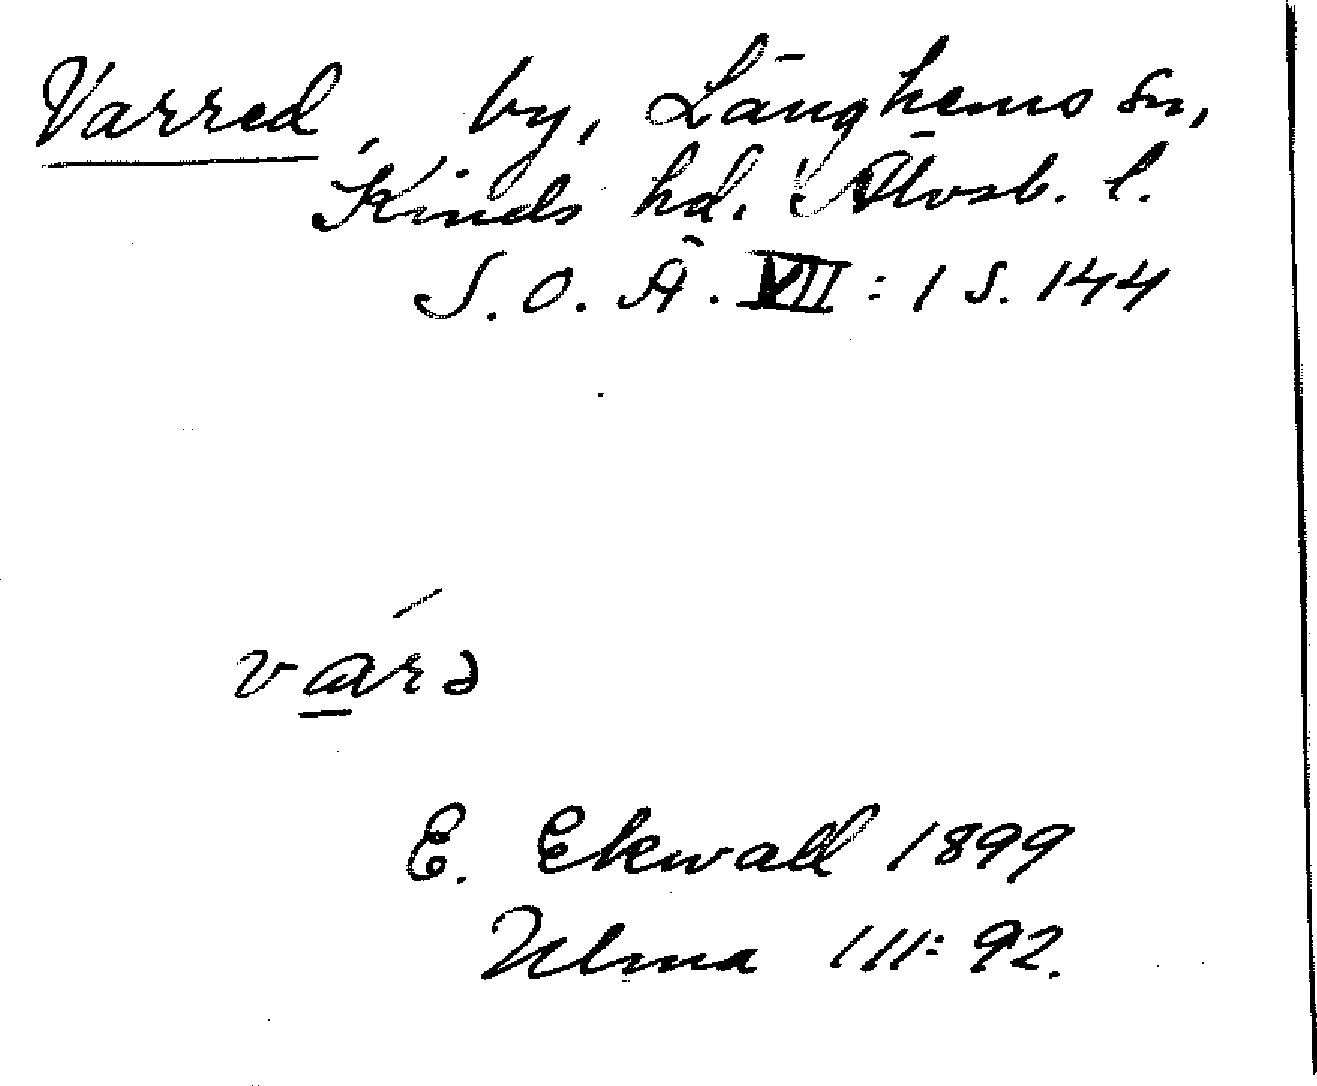 Varred, by, Länghems sn,
Kinds hd. Älvsb. l.
S. O. Ä. VII: 1 s. 144
várə
E. Ekwall 1899
Ulma 111: 92.